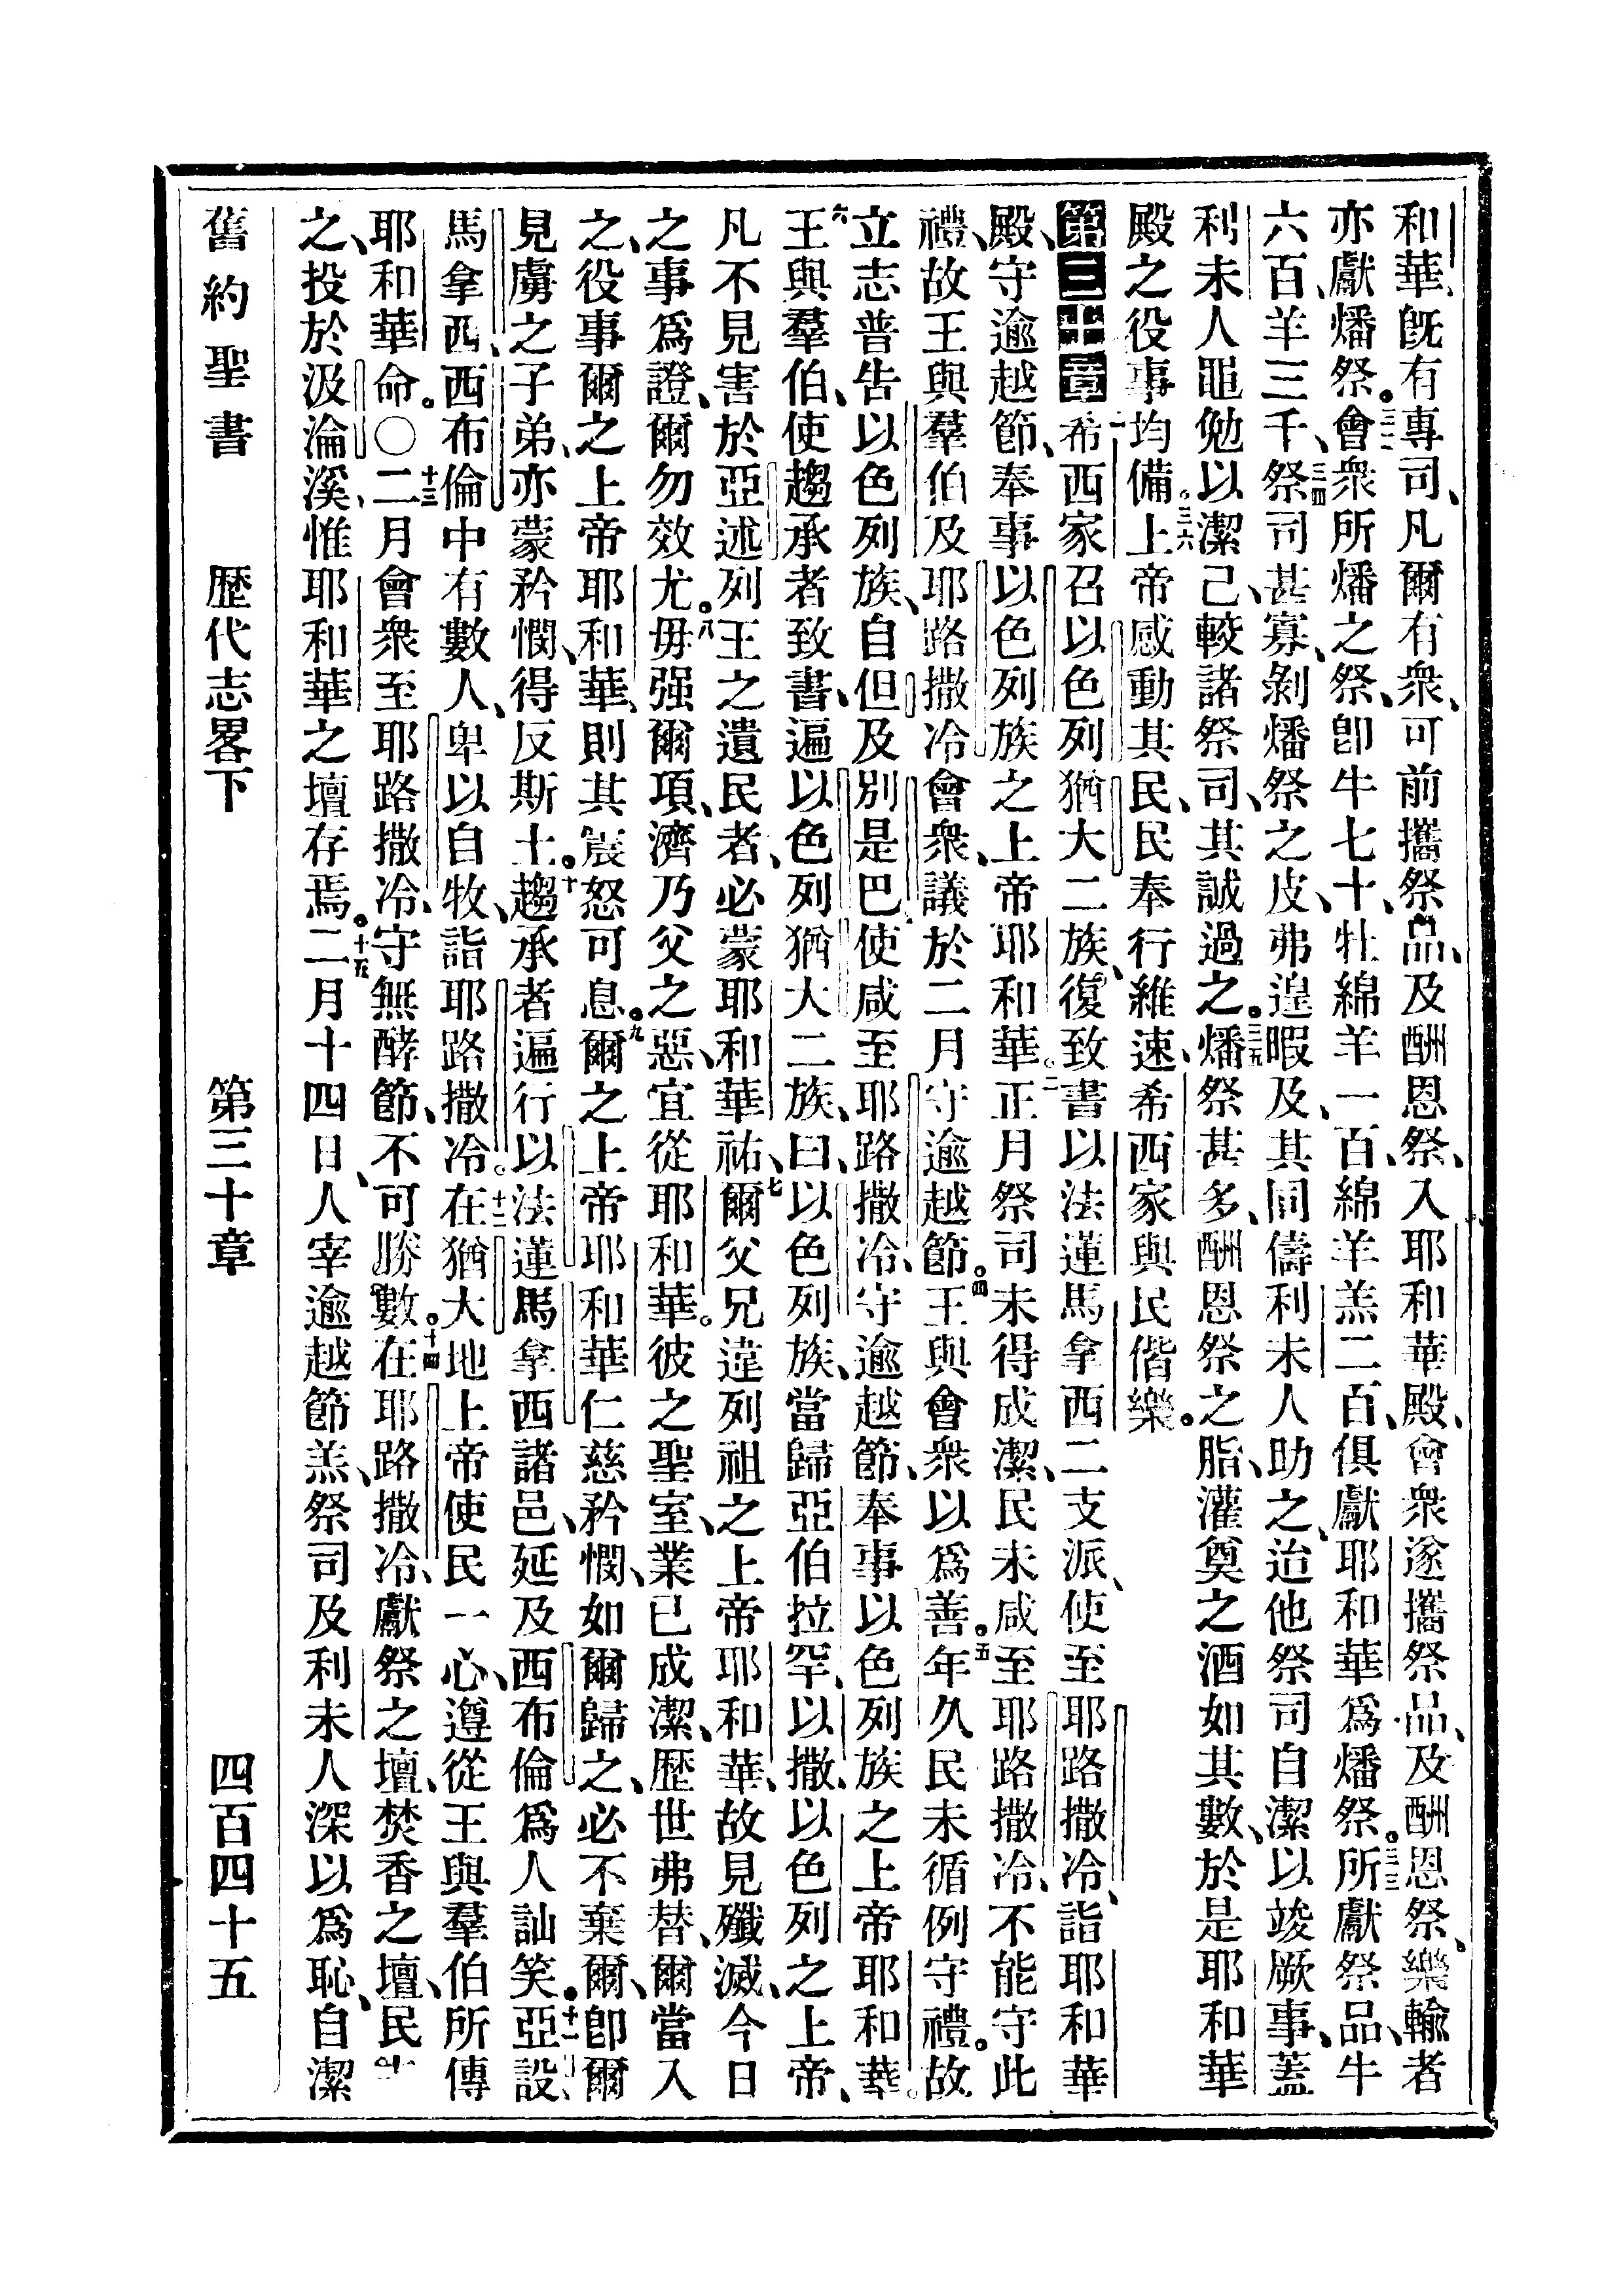 和華、旣有專司、凡爾有衆、可前攜祭品、及酬恩祭、入耶和華殿、會衆遂攜祭品、及酬恩祭、樂輸者
亦獻燔祭。三二會衆所燔之祭、卽牛七十、牡綿羊一百、綿羊羔二百、俱獻耶和華爲燔祭。三三所獻祭品、牛
六百、羊三千、三四祭司甚寡、剝燔祭之皮、弗遑暇及、其同儔利未人助之、迨他祭司自潔以竣厥事、蓋
利未人黽勉以潔己、較諸祭司、其誠過之。三五燔祭甚多、酬恩祭之脂、灌奠之酒如其數、於是耶和華
殿之役事均備。三六上帝感動其民、民奉行維速、希西家與民偕樂。
第三十章一希西家召以色列猶大二族、復致書以法蓮馬拿西二支派、使至耶路撒冷、詣耶和華
殿、守逾越節、奉事以色列族之上帝耶和華。二正月祭司未得成潔、民未咸至耶路撒冷、不能守此
禮、故王與羣伯及耶路撒冷會衆、議於二月守逾越節。四王與會衆以爲善。五年久民未循例守禮。故
立志普告以色列族、自但及別是巴、使咸至耶路撒冷、守逾越節、奉事以色列族之上帝耶和華。
六王與羣伯、使趨承者致書、遍以色列猶大二族、曰、以色列族、當歸亞伯拉罕、以撒、以色列之上帝、
凡不見害於亞述列王之遺民者、必蒙耶和華祐、七爾父兄違列祖之上帝耶和華、故見殲滅、今日
之事爲證、爾勿效尤。八毋强爾項、濟乃父之惡、宜從耶和華。彼之聖室、業已成潔、歷世弗替、爾當入
之、役事爾之上帝耶和華、則其震怒可息。九爾之上帝耶和華仁慈矜憫、如爾歸之、必不棄爾、卽爾
見虜之子弟、亦蒙矜憫、得反斯土。十趨承者遍行以法蓮馬拿西諸邑、延及西布倫、爲人訕笑。十一亞設、
馬拿西、西布倫中有數人、卑以自牧、詣耶路撒冷。十二在猶大地上帝使民一心、遵從王與羣伯所傳
耶和華命。〇十三二月會衆至耶路撒冷、守無酵節、不可勝數。十四在耶路撒冷、獻祭之壇、焚香之壇、民
之、投於汲淪溪、惟耶和華之壇存焉。十五二月十四日、人宰逾越節羔、祭司及利未人深以爲恥、自潔
舊約聖書 歷代志畧下 第三十章 四百四十五